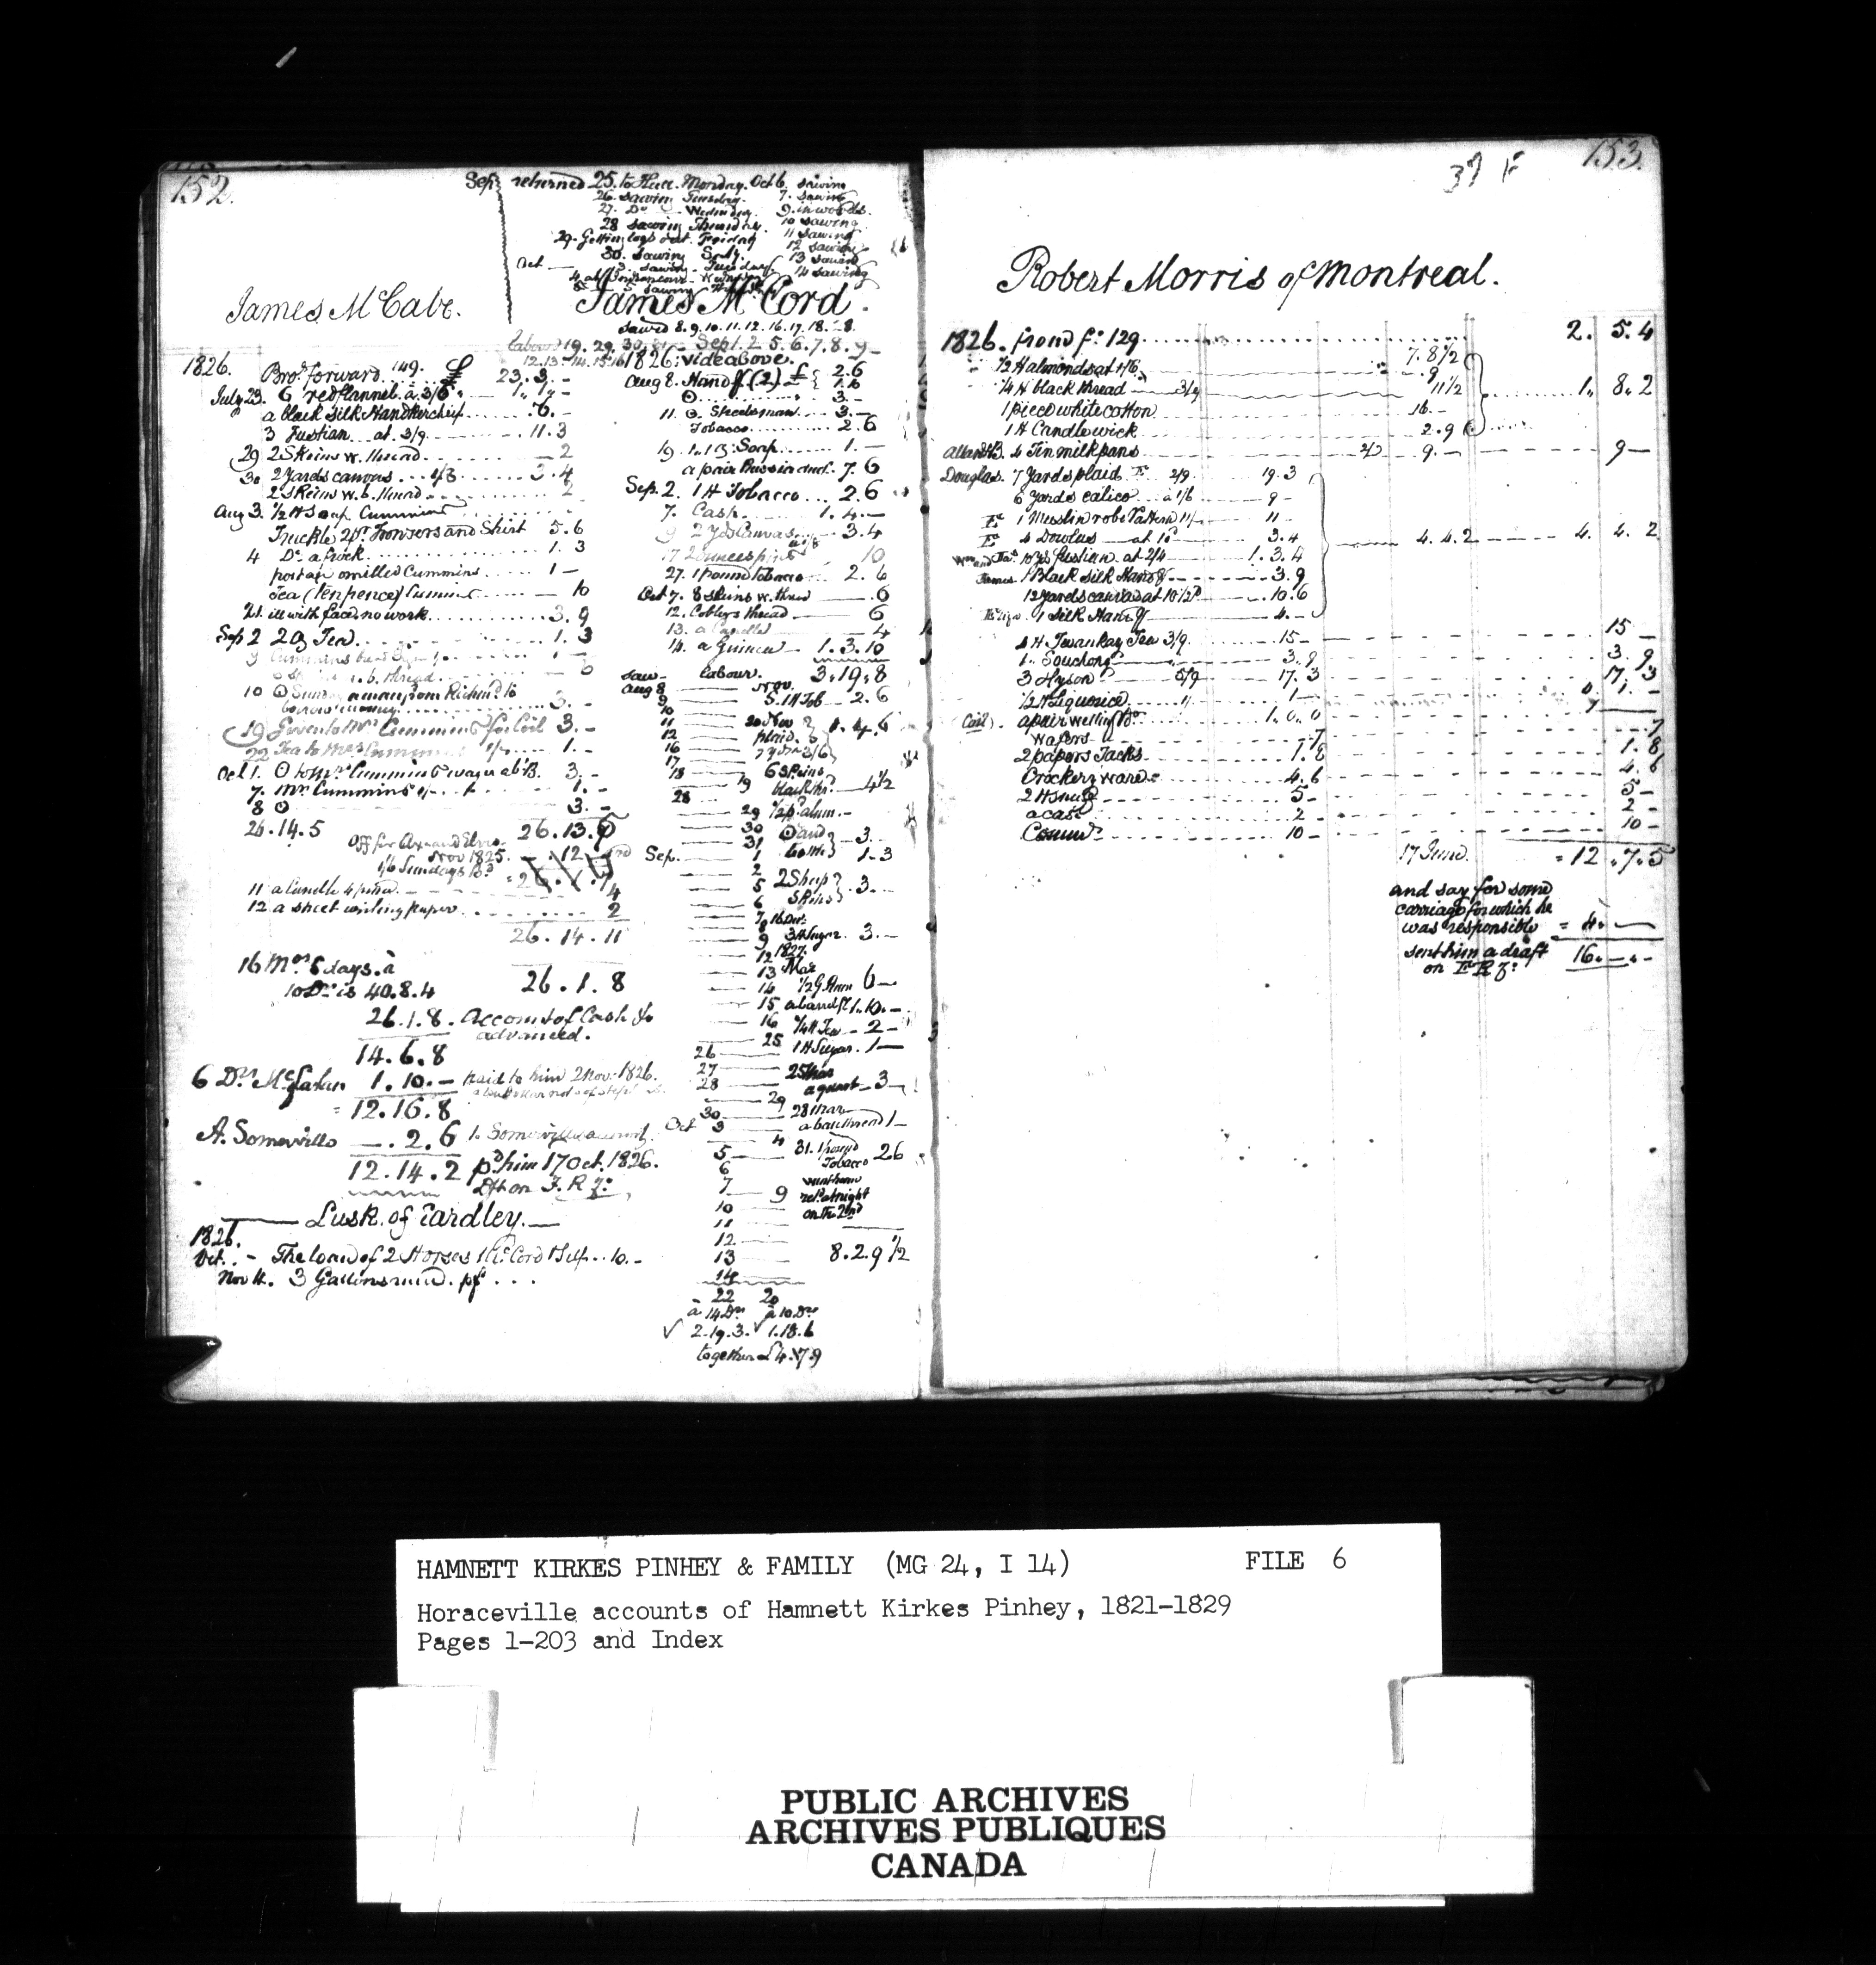 152.
Sep. returned 25. to Hull. Monday. Oct 6. sawing
26. sawing Tuesday. 7. sawing
27. Do Wednesday. 9. in woods.
28 sawing Thursday. 10 sawing
29. Getting logs out. Friday 11 sawing
30. sawing Saty. 12 sawing
Oct 3. sawing Tuesday 13 sawing
14 sawing
James McCabe.
1826.
Brot forward 149. £ 23.3.-
July 23. 6 red flannel. a 3/6 1.1.-
a black silk Handkerchief .6.-
3 Fustian at 3/9 .11.3
29 2 Skeins w. thread 2
30 2 Yards canvas 1/8 3.4
2 Skeins w. b. thread 2
Aug 3. 1/2 H soap Cummins
Truckle 2 pr Trowsers and Shirt 5.6
4 Do a frock 1.3
postage omitted Cummins 1-
Tea (Tenpence) Cummins 10
21. ill with face. no work 3.9
Sep 2 2 oz Tea 1.3
b. thread
10 Sunday away from Richmd to
borrow money 3.-
19 Given to Mrs Cummins for Coil 3.-
22 Tea to Mrs Cummins 1.-
Oct 1. O to Mrs Cummins 3.-
7. Mrs Cummins 1.-
8 O 3.-
26.14.5 26.13.5
Nov 1825. .12
1/6 Sundays
11 a Candle 4
12 a sheet writing paper 2
26.14.11
16 Mos 5 days. à
10 Drs is 40.8.4 26.1.8
26.1.8. Account of Cash &c
advanced.
14.6.8
6 Drs 1.10.- paid to him 2 Nov. 1826.
= 12.16.8
A. Somerville -.2.6
12.14.2 pd him 17 Oct. 1826.
Dft on F. R
Lusk. of Eardley.
1826.
Oct. - The loan of 2 Horses McCord 10.-
Nov 4. 3 Gallons
James McCord.
sawed 8.9.10.11.12.16.17.18.28.
labour 19.29.30.31 Sep 1.2 5.6.7.8.9
12.13.14.15.16 1826: vide above.
Aug 8. Handf (2) £ 2.6
1.6
O 3.-
11. O. Steelsman 3.-
Tobacco 2.6
19. Soap 1.-
a pair Russia duck 7.6
Sep. 2. 1 H Tobacco 2.6
7. Cash 1.4.-
9 2 Yds Canvas 3.4
17 10
27. 1 pound tobacco 2.6
Oct 7. 8 skeins w. thread .6
12. Coblers thread 6
13. a Candle 4
14. a Guinea 1.3.10
saw- labour. 3.19.8
Aug 8 Nov.
9 5. 1 H Tob 2.6
10
11 20 Nov } 1.4.6
12 plaid.
16 7 Yds 3/6
17
18 6 Skeins
19 black thr. 4 1/2
28
29 1/2 p. alum
30 O and } 3.
31
Sep. 1 1-3
2
5 2 Sheep } .3.
6 Skins
7 16 Dec.
8
9 3 H Sugar. 3.-
12 1827.
13 Mar
14 1/2 G. Rum 6-
15 a barrel fl 1.10.-
16 1/4 H Tea 2-
25 1 H Sugar. 1-
26
27 25 Mar
28 a quart 3-
29
30 28 Mar
Oct 3
4 31. 1 pound
5 Tobacco 26
6
7 9 ret. at night
10 on the 2nd
11
12
13 8.2.9 1/2
14
22 20
à 14 Drs à 10 Drs
2.19.3. 1.18.6
together £4.17.9
153.
37 F
Robert Morris of Montreal.
1826. from fo: 129 2. 5.4
1/2 H almonds at 1/6 7.8 1/2
.9
1/4 H black thread 3/9 11 1/2 1. 8.2
1 piece white cotton 16.-
1 H Candlewick 2.9
4 Tin milk pans 9.- 9-
Douglas. 7 Yards plaid Ec 2/9 19.3
6 Yards calico a 1/6 9-
Ec 1 Muslin robe Pattern 11/- 11-
Ec 4 Dowlas at 10d 3.4 4.4.2 4. 4.2
Wm and Jas 10 Yds fustian at 2/4 1.3.4
James 1 Black silk Handf 3.9
12 Yards canvas at 10 1/2d 10.6
Eliza 1 Silk Handf 4.-
4 H Twankay Tea 3/9 15- 15-
1. Souchong 3.9 3.9
3 Hyson 5/9 17.3 17.3
1/2 H Liquorice 1 1.-
Coil). a pair Wellingtn Bo. 1.0.0
Wafers 7 7
2 papers Tacks 1.8 1.8
Crockery ware 4.6 4.6
2 H snuff 5- 5-
a cask 2- 2-
Commn 10- 10-
17 June. = 12.7.5
and say for some
carriage for which he
was responsible = 4.-
sent him a draft 16.-.-
on F R
HAMNETT KIRKES PINHEY & FAMILY (MG 24, I 14) FILE 6
Horaceville accounts of Hamnett Kirkes Pinhey, 1821-1829
Pages 1-203 and Index
PUBLIC ARCHIVES
ARCHIVES PUBLIQUES
CANADA